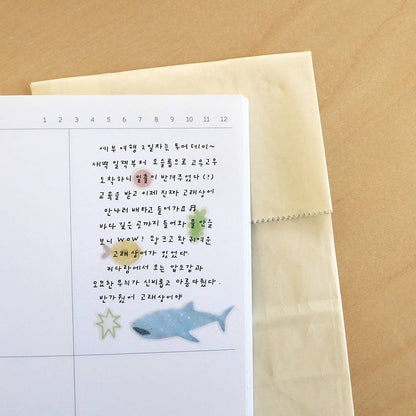 1 2 3 4 5 6 7 8 9 10 11 12
세부여행 2일차는 투어데이~
새벽 일찍부터 오슬롭으로 고우고우
도착하니 일출이 반겨주었다(?)
교육을 받고 이제 진짜 고래상어
만나러 배타고 들어가요♫
바다 깊은 곳까지 들어와 물 안을
보니 WOW! 왕크고 왕귀여운
고래상어가 있었다.
커다람에서 오는 압도감과
오묘한 무늬가 신비롭고 아름다웠다.
반가웠어 고래상어야